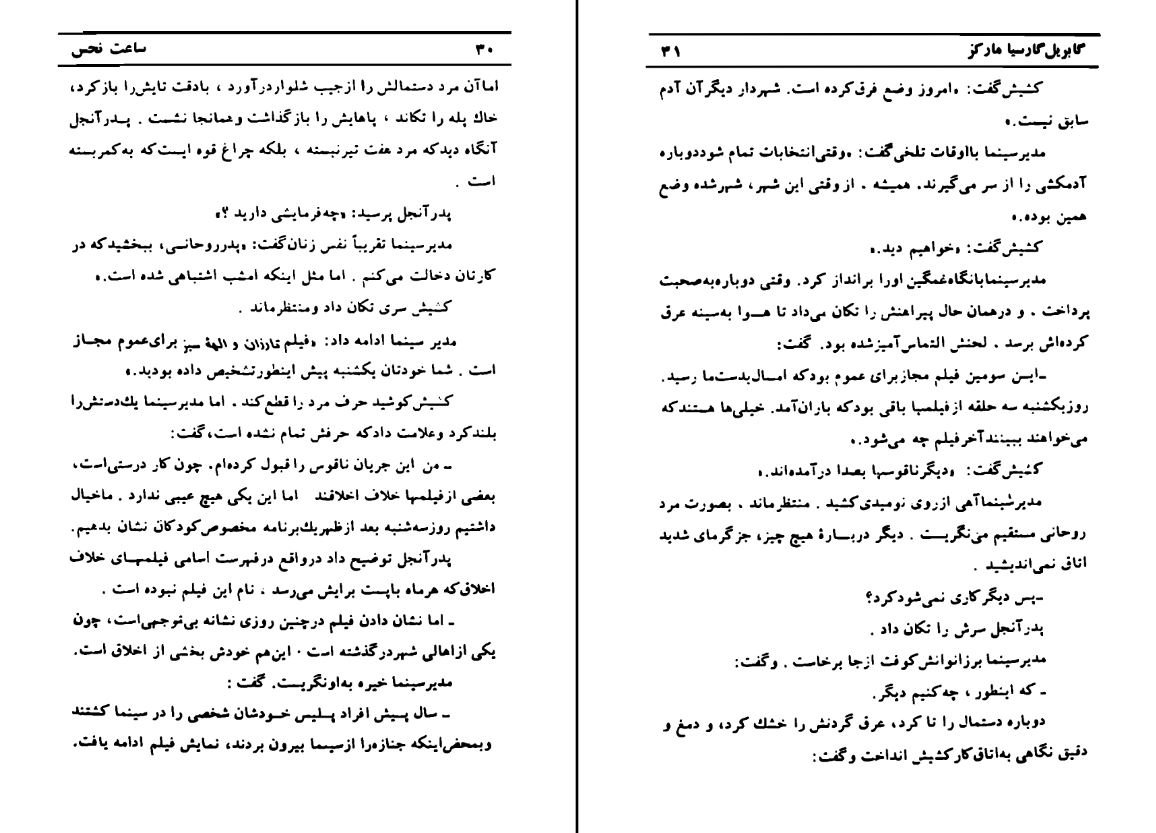 ۳۰ ساعت نحس
اما آن مرد دستمالش را از جیب شلوار درآورد ، با دقت تایش را باز کرد،
خاك پله را تکاند ، پاهایش را باز گذاشت و همانجا نشست . پدر آنجل
آنگاه دید که مرد هفت تیر نبسته ، بلکه چراغ قوه ایست که به کمر بسته
است .
پدر آنجل پرسید: «چه فرمایشی دارید ؟»
مدیر سینما تقریباً نفس زنان گفت: «پدر روحانی، ببخشید که در
کارتان دخالت می‌کنم . اما مثل اینکه امشب اشتباهی شده است.»
کشیش سری تکان داد و منتظر ماند .
مدیر سینما ادامه داد: «فیلم تارزان و الهۀ سبز برای عموم مجاز
است . شما خودتان یکشنبه پیش اینطور تشخیص داده بودید.»
کشیش کوشید حرف مرد را قطع کند . اما مدیر سینما یك دستش را
بلند کرد و علامت داد که حرفش تمام نشده است، گفت:
ـ من این جریان ناقوس را قبول کرده‌ام. چون کار درستی است،
بعضی از فیلمها خلاف اخلاقند اما این یکی هیچ عیبی ندارد . ما خیال
داشتیم روز سه‌شنبه بعد از ظهر یك برنامه مخصوص کودکان نشان بدهیم.
پدر آنجل توضیح داد در واقع در فهرست اسامی فیلمهای خلاف
اخلاق که هر ماه با پست برایش می‌رسد ، نام این فیلم نبوده است .
ـ اما نشان دادن فیلم در چنین روزی نشانه بی‌توجهی است، چون
یکی از اهالی شهر درگذشته است . این هم خودش بخشی از اخلاق است.
مدیر سینما خیره به او نگریست. گفت :
ـ سال پیش افراد پلیس خودشان شخصی را در سینما کشتند
و بمحض اینکه جنازه را از سینما بیرون بردند، نمایش فیلم ادامه یافت.
گابریل گارسیا مارکز ۳۱
کشیش گفت: «امروز وضع فرق کرده است. شهردار دیگر آن آدم
سابق نیست.»
مدیر سینما با اوقات تلخی گفت: «وقتی انتخابات تمام شود دوباره
آدمکشی را از سر می‌گیرند. همیشه . از وقتی این شهر، شهر شده وضع
همین بوده.»
کشیش گفت: «خواهیم دید.»
مدیر سینما با نگاه غمگین او را برانداز کرد. وقتی دوباره به صحبت
پرداخت . و در همان حال پیراهنش را تکان می‌داد تا هوا به سینه عرق
کرده‌اش برسد . لحنش التماس آمیز شده بود. گفت:
ـ این سومین فیلم مجاز برای عموم بود که امسال بدست ما رسید.
روز یکشنبه سه حلقه از فیلمها باقی بود که باران آمد. خیلی‌ها هستند که
می‌خواهند ببینند آخر فیلم چه می‌شود.»
کشیش گفت: «دیگر ناقوسها بصدا درآمده‌اند.»
مدیر شینما آهی از روی نومیدی کشید . منتظر ماند . بصورت مرد
روحانی مستقیم می‌نگریست . دیگر دربارۀ هیچ چیز، جز گرمای شدید
اتاق نمی‌اندیشید .
ـ پس دیگر کاری نمی‌شود کرد؟
پدر آنجل سرش را تکان داد .
مدیر سینما بر زانوانش کوفت از جا برخاست . و گفت:
ـ که اینطور ، چه کنیم دیگر.
دوباره دستمال را تا کرد، عرق گردنش را خشك کرد، و دمغ و
دقیق نگاهی به اتاق کار کشیش انداخت و گفت: